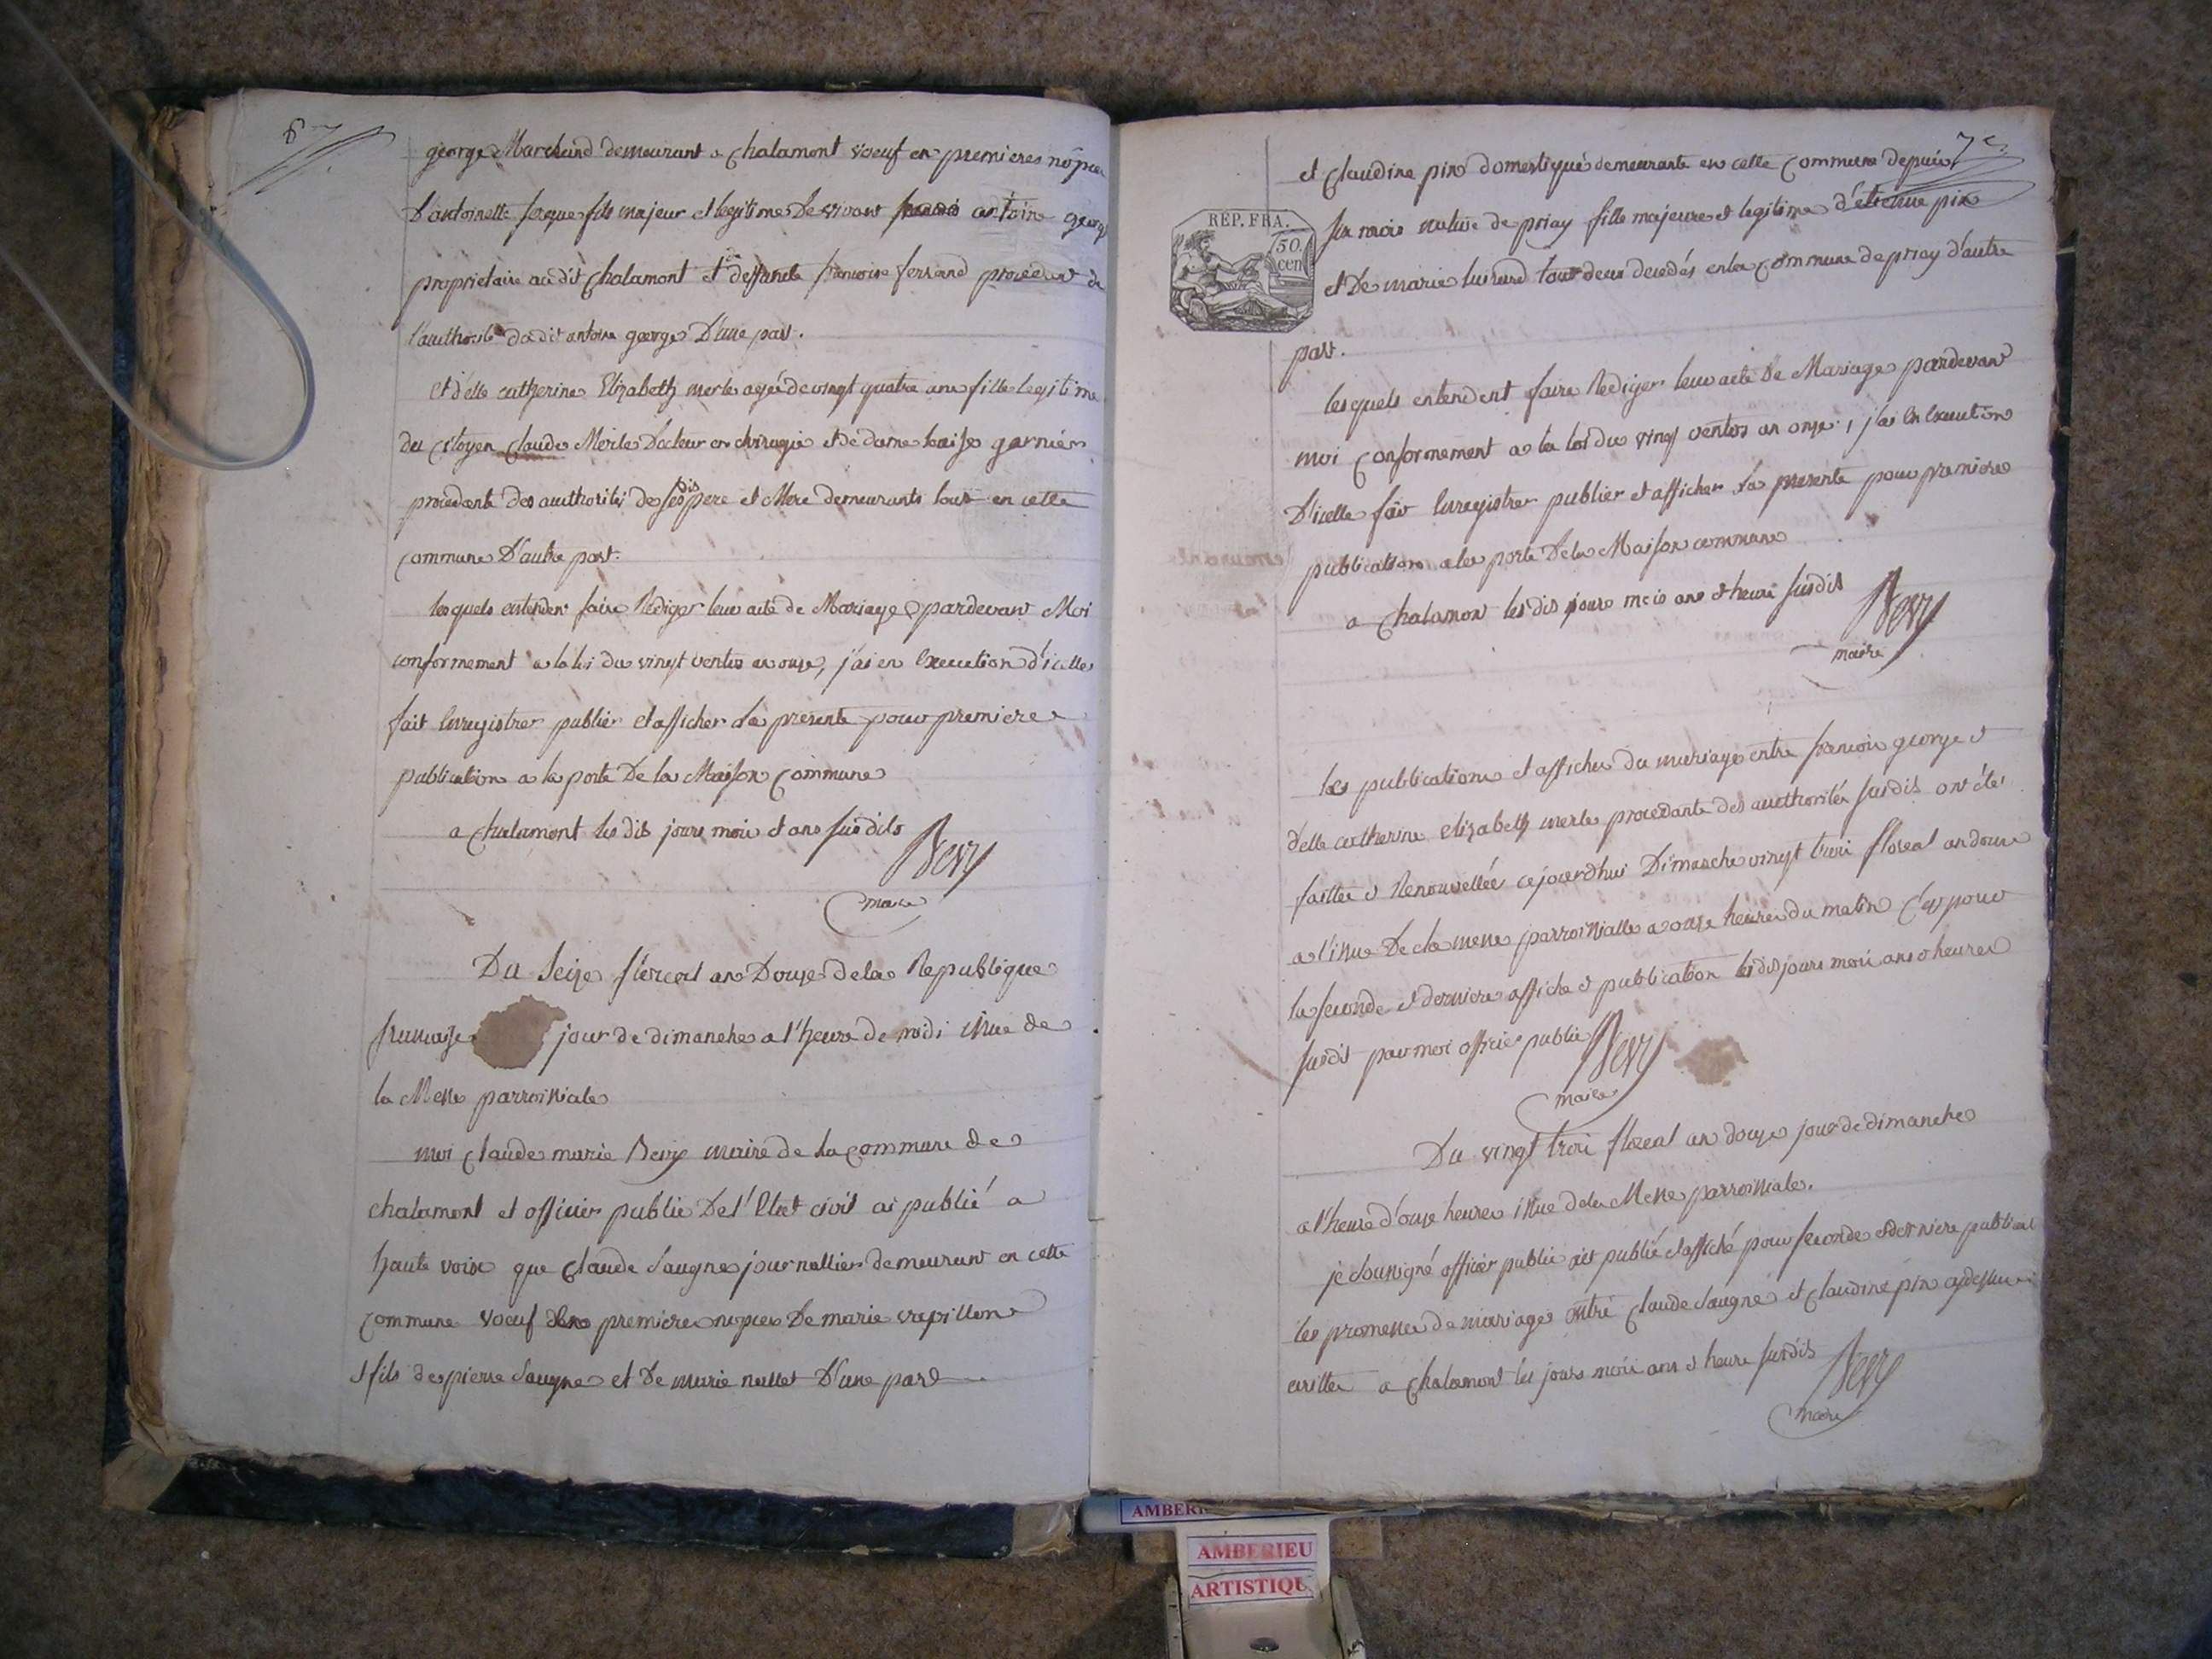 6
george Marchand demeurant a chalamont voeuf en premieres nopces
D'antoinette fils majeur et legitime De vivant antoine george
proprietaire audit chalamont et deffuncte francoise ferrand procedant de
l'authorité dudit antoine george D'une part.
et delle catherine Elizabeth merle agée de vingt quatre ans fille legitime
du citoyen claude Merle Docteur en chirugie et de dame garnier
procedante des authorités de ses dis pere et Mere demeurants tous en cette
commune D'autre part.
lesquels entendent faire Rediger leur acte de Mariage pardevant Moi
conformement a la loi du vingt ventos an onze, j'ai en Execution d'icelle
fait Enregistrer publier et afficher la presente pour premiere
publication a la porte De la Maison Commune
a chalamont les dits jours mois et ans susdits
Bevy
maire
Du Seize floreal an Douze de la Republique
francaise jour de dimanche a l'heure de midi issue de
la Messe parroissiale
moi claude marie Bevy maire de la commune de
chalamont et officier public De l'Etat civil ai publié a
haute voix que Claude Saugne journallier demeurant en cette
commune voeuf premiere nopces De marie crepillon
et fils de pierre Saugne et De marie D'une part
7e
et Claudine pin domestique demeurante en cette Commune depuis
six mois native de priay fille majeure et legitime d'etienne pin
REP. FRA.
50.
cen
et De marie tous deux decedés en la commune de priay d'autre
part.
lesquels entendent faire Rediger leur acte De Mariage pardevant
moi Conformement a la loi du vingt ventos an onze, j'ai En Execution
D'icelle fait Enregistrer publier et afficher la presente pour premiere
publication a la porte De la Maison commune
a chalamont les dis jours mois ans et heure susdis
Bevy
maire
les publications et affiches du mariage entre francois george et
delle catherine elizabeth merle procedante des authorités susdis ont étés
faittes et Renouvellées cejourdhui Dimanche vingt trois floreal an douze
a l'issue De la messe parroissialle a onze heures du matin c'est pour
la seconde et derniere affiche et publication les dis jours mois ans et heures
susdis par moi officier public
Bevy
maire
Du vingt trois floreal an douze jour de dimanche
a l'heure d'onze heures issue de la Messe parroissiale.
je soussigné officier public ait publié et affiché pour seconde et derniere publication
les promesses de mariage entre claude Saugne et claudine pin cydessus
a chalamont les jours mois ans et heure susdis
Bevy
maire
AMBERIEU
ARTISTIQU